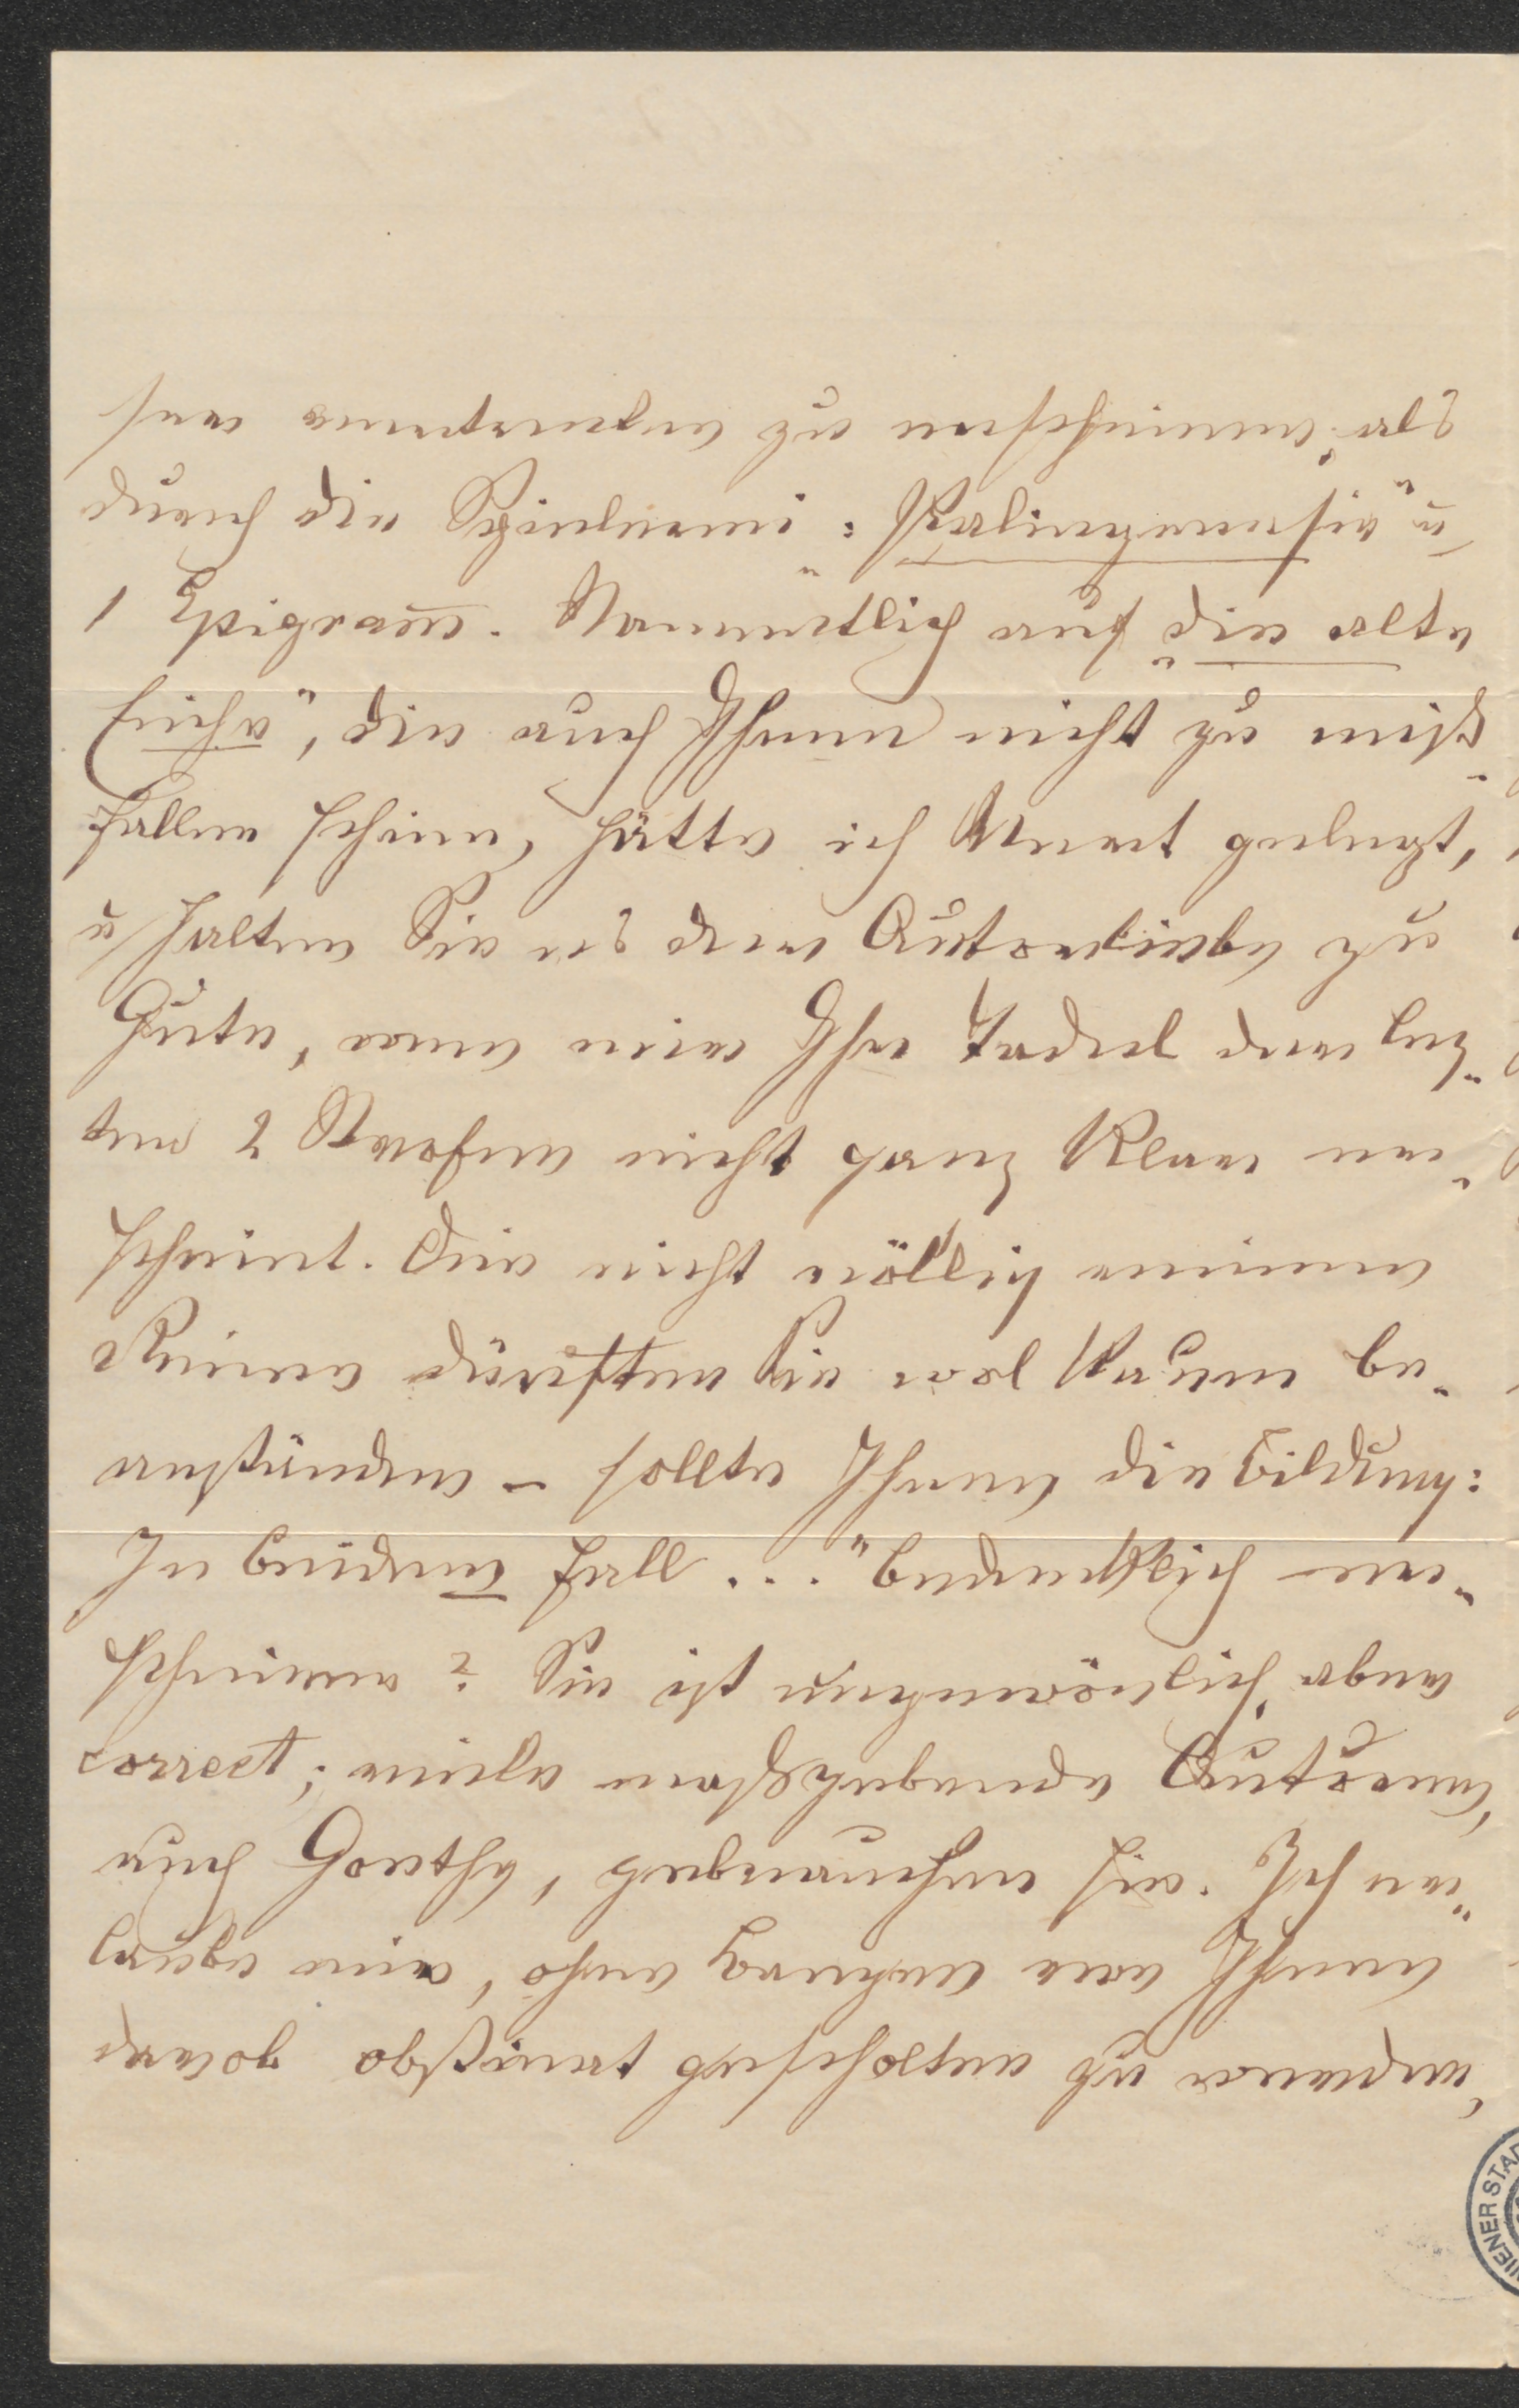 ser vertreten zu erscheinen, als
durch die Spielerei: „Palingenesie“ u
1 Epigram̅. Namentlich auf „die alte
Eiche“, die auch Ihnen nicht zu miß-
fallen schien, hätte ich Wert gelegt,
u halten Sie es der Autorliebe zu
Gute, wenn mir Ihr Tadel der lez-
ten 2 Strofen nicht ganz klar er-
scheint. Die nicht völlig reinen
Reime dürften Sie wol kaum be-
anständen – sollte Ihnen die Bildung:
„In beiden Fall...“ bedenklich er-
scheinen? Sie ist ungewönlich, aber
correct; viele maßgebende Autoren,
auch Goethe, gebrauchen sie. Ich er-
laube mir, ohne Bangen von Ihnen
drob obstinat gescholten zu werden,
WIENER STAD